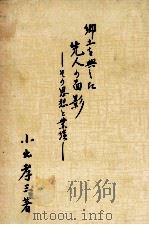 郷土を興した
先人の面影
—その思想と業績—
小出孝三著